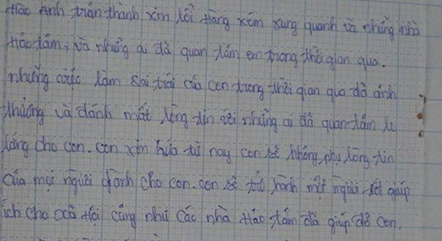 Hào Anh trân thành xin lỗi Hàng xóm xung quanh và những nhà
Hảo tâm, và những ai đã quan tâm em trong thời gian qua.
những việc làm sai trái của con trong thời gian qua đã ảnh
Hưởng và đánh mất lòng tin với những ai đã quan tâm lo
lắng cho con. con xin hứa từ nay con sẽ không phụ lòng tin
của mọi người dành cho con. con sẽ trở thành một người tốt giúp
ích cho xã Hội cũng như Các nhà Hảo tâm đã giúp đỡ con.